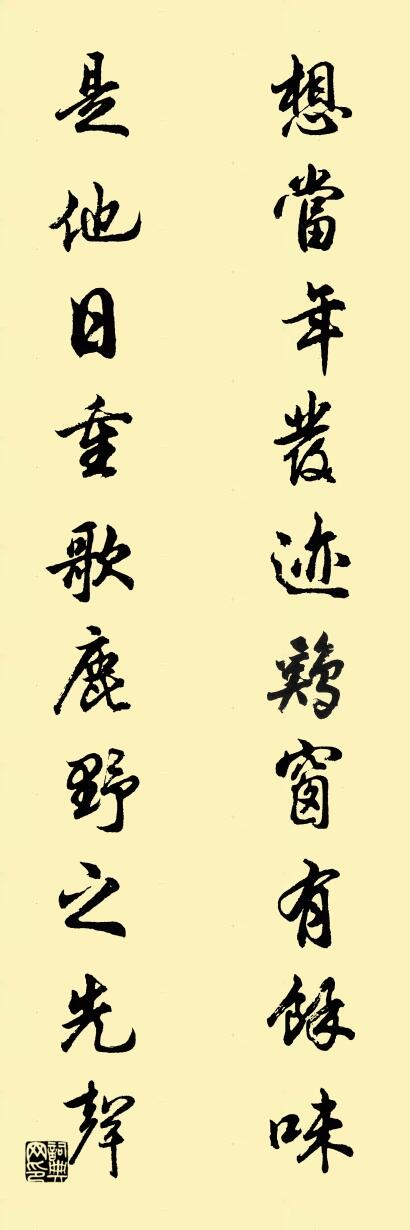 想當年發迹鷄窗有餘味
是他日重歌鹿野之先聲
詞典网印